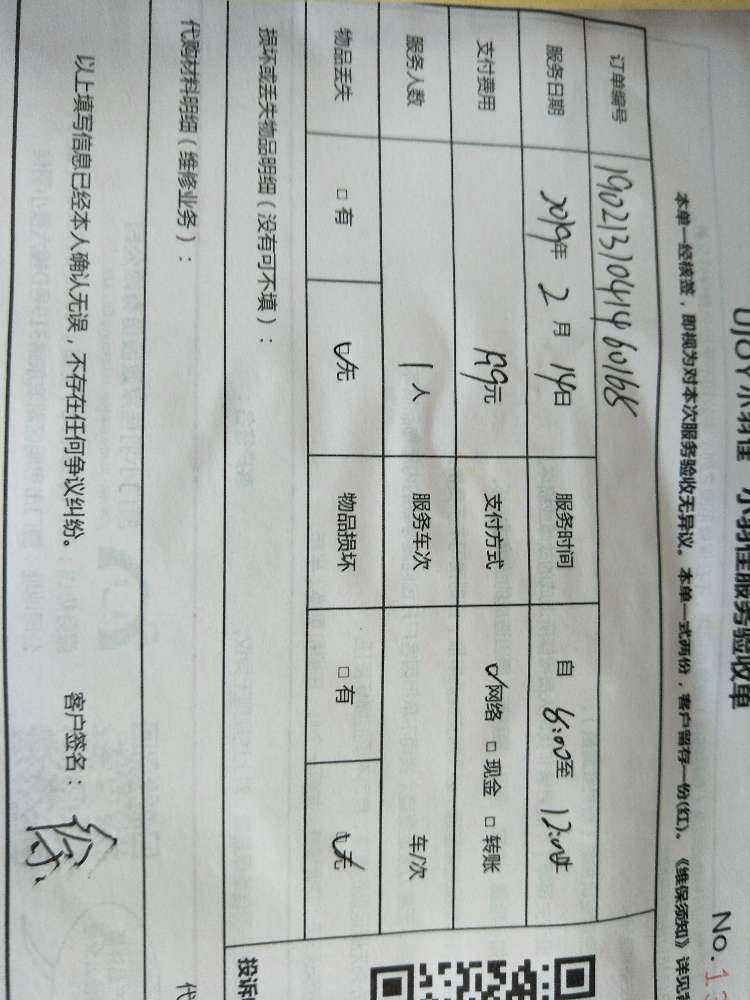 UJOY小羽佳 小羽佳服务验收单
No.13
本单一经核签，即视为对本次服务验收无异议。本单一式两份，客户留存一份(红)。《维保须知》详见
订单编号 1902131041460168
服务日期 2019年 2月 14日 服务时间 自 8:00至 12:00止
支付费用 199元 支付方式 ☑网络 □ 现金 □ 转账
服务人数 1人 服务车次 车/次
物品丢失 □ 有 ☑无 物品损坏 □ 有 ☑无
损坏或丢失物品明细（没有可不填）：
投诉
代购材料明细（维修业务）：
代
以上填写信息已经本人确认无误，不存在任何争议纠纷。 客户签名： 徐